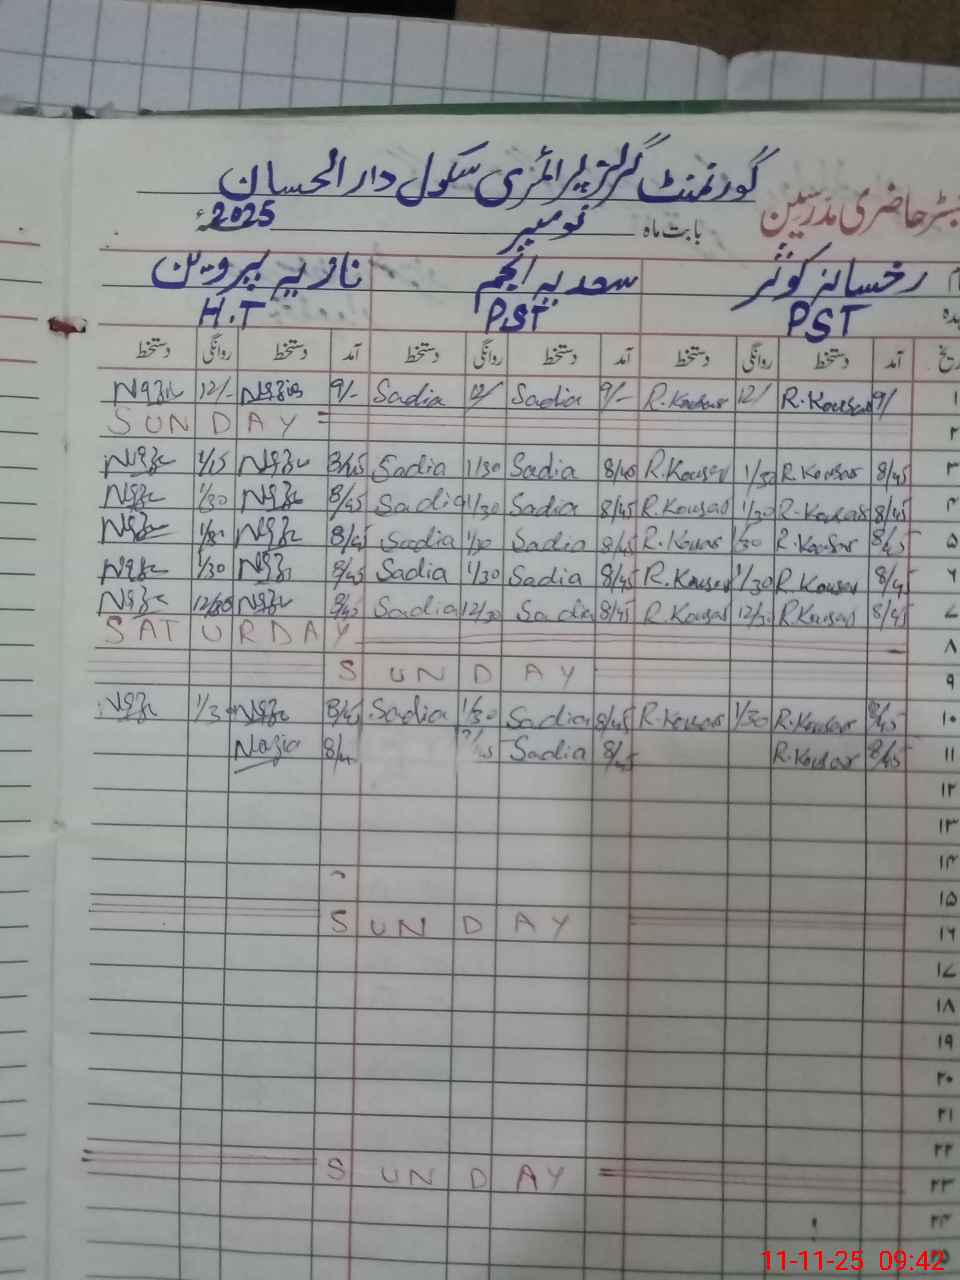 گورنمنٹ گرلز پرائمری سکول دارالحسان
حاضری مدرسین بابت ماہ نومبر 2025ء
رخسانہ کوثر سعدیہ انجم نازیہ پروین
PST PST H.T
تاریخ آمد دستخط روانگی دستخط آمد دستخط روانگی دستخط آمد دستخط روانگی دستخط
۱ 9/ R.Kousar 12/ R.Kousar 9/- Sadia 12/ Sadia 9/- Nazia 12/-
۲ SUNDAY
۳ 8/45 R.Kousar 1/30 R.Kousar 8/40 Sadia 1/30 Sadia 8/45 1/15
۴ 8/45 R.Kousar 1/30 R.Kousar 8/45 Sadia 1/30 Sadia 8/45 1/30
۵ 8/45 R.Kousar 1/30 R.Kousar 8/45 Sadia 1/30 Sadia 8/45 1/30
۶ 8/45 R.Kousar 1/30 R.Kousar 8/45 Sadia 1/30 Sadia 8/45 1/30
۷ 8/45 R.Kousar 12/30 R.Kousar 8/45 Sadia 12/30 Sadia 8/45 12/30
۸ SATURDAY
۹ SUNDAY
۱۰ 8/45 R.Kousar 1/30 R.Kousar 8/45 Sadia 1/30 Sadia 8/45 1/30
۱۱ 8/45 R.Kousar 8/45 Sadia Nazia
۱۲
۱۳
۱۴
۱۵
۱۶ SUNDAY
۱۷
۱۸
۱۹
۲۰
۲۱
۲۲
۲۳ SUNDAY
۲۴
۲۵
11-11-25 09:42